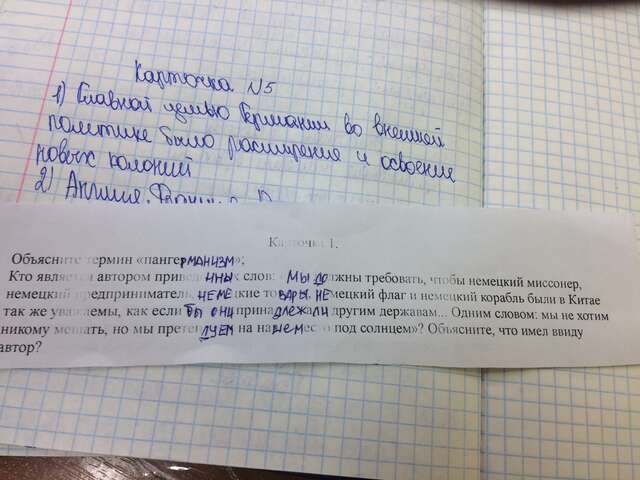 Карточка N5
1) Главной целью Германии во внешней
политике было расширение и освоение
новых колоний
2) Англия.
Карточка 1.
Объясните термин «пангерманизм»;
Кто является автором приведённых слов: Мы должны требовать, чтобы немецкий миссонер,
немецкий предприниматель, немецкие товары, немецкий флаг и немецкий корабль были в Китае
так же уважаемы, как если бы они принадлежали другим державам... Одним словом: мы не хотим
никому мешать, но мы претендуем на наше место под солнцем»? Объясните, что имел ввиду
автор?